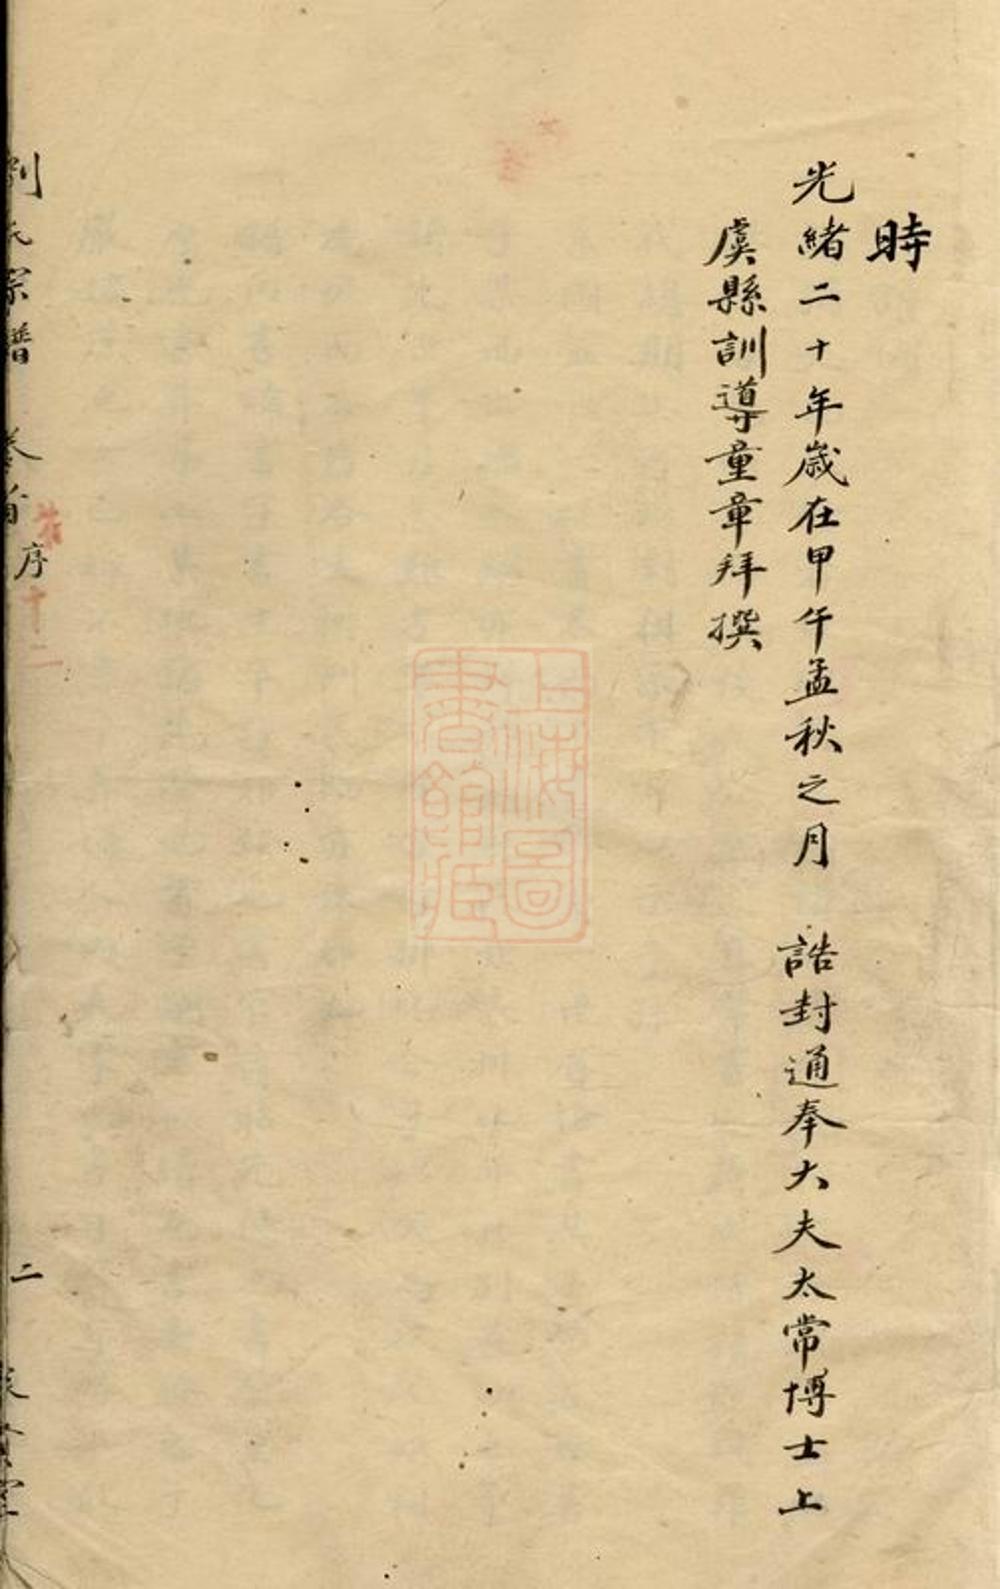 時
光緒二十年歲在甲午孟秋之月 誥封通奉大夫太常博士上
虞縣訓導童章拜撰
上海圖
書館藏
劉氏宗譜 卷首 序 十二
二